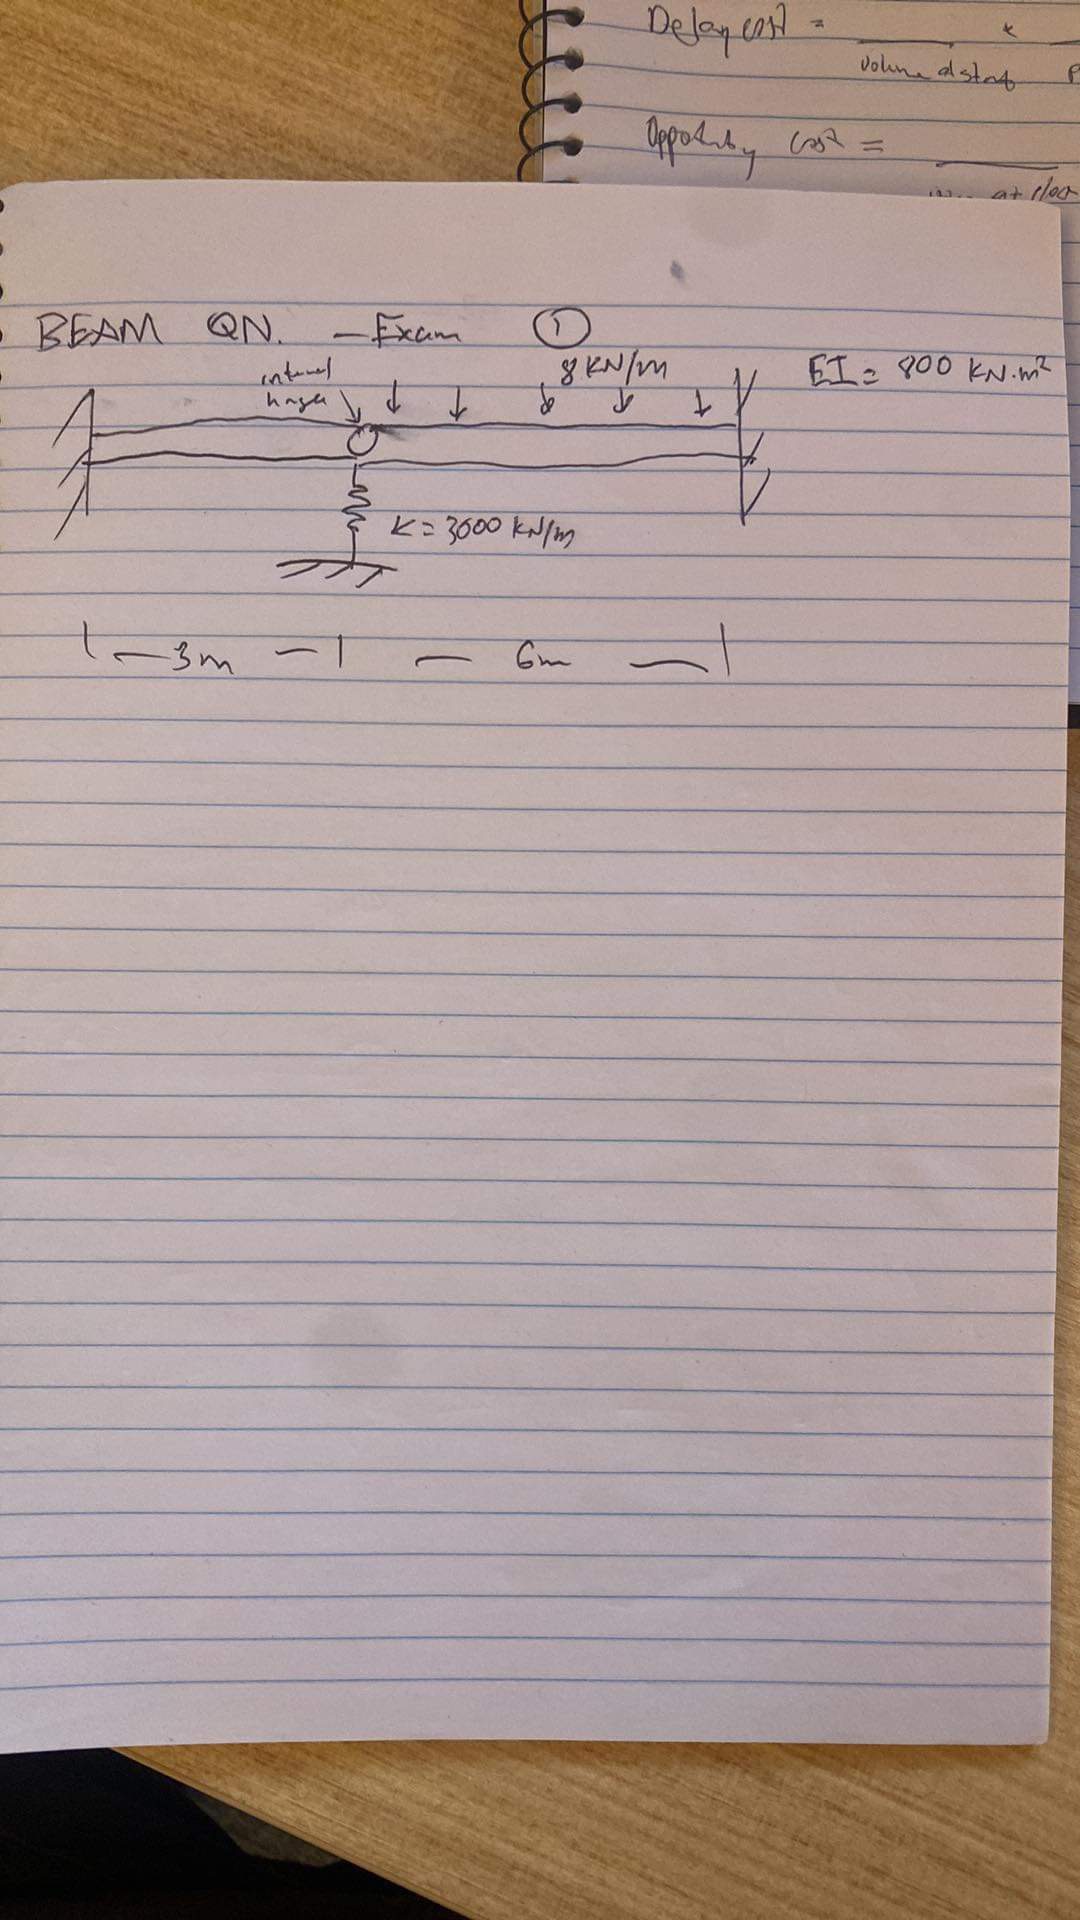 Delay cost = *
volume at start
Opportunity cost =
at close
BEAM QN. - Exam ①
internal
8 KN/m EI = 800 KN·m²
K = 3000 KN/m
3m 6m